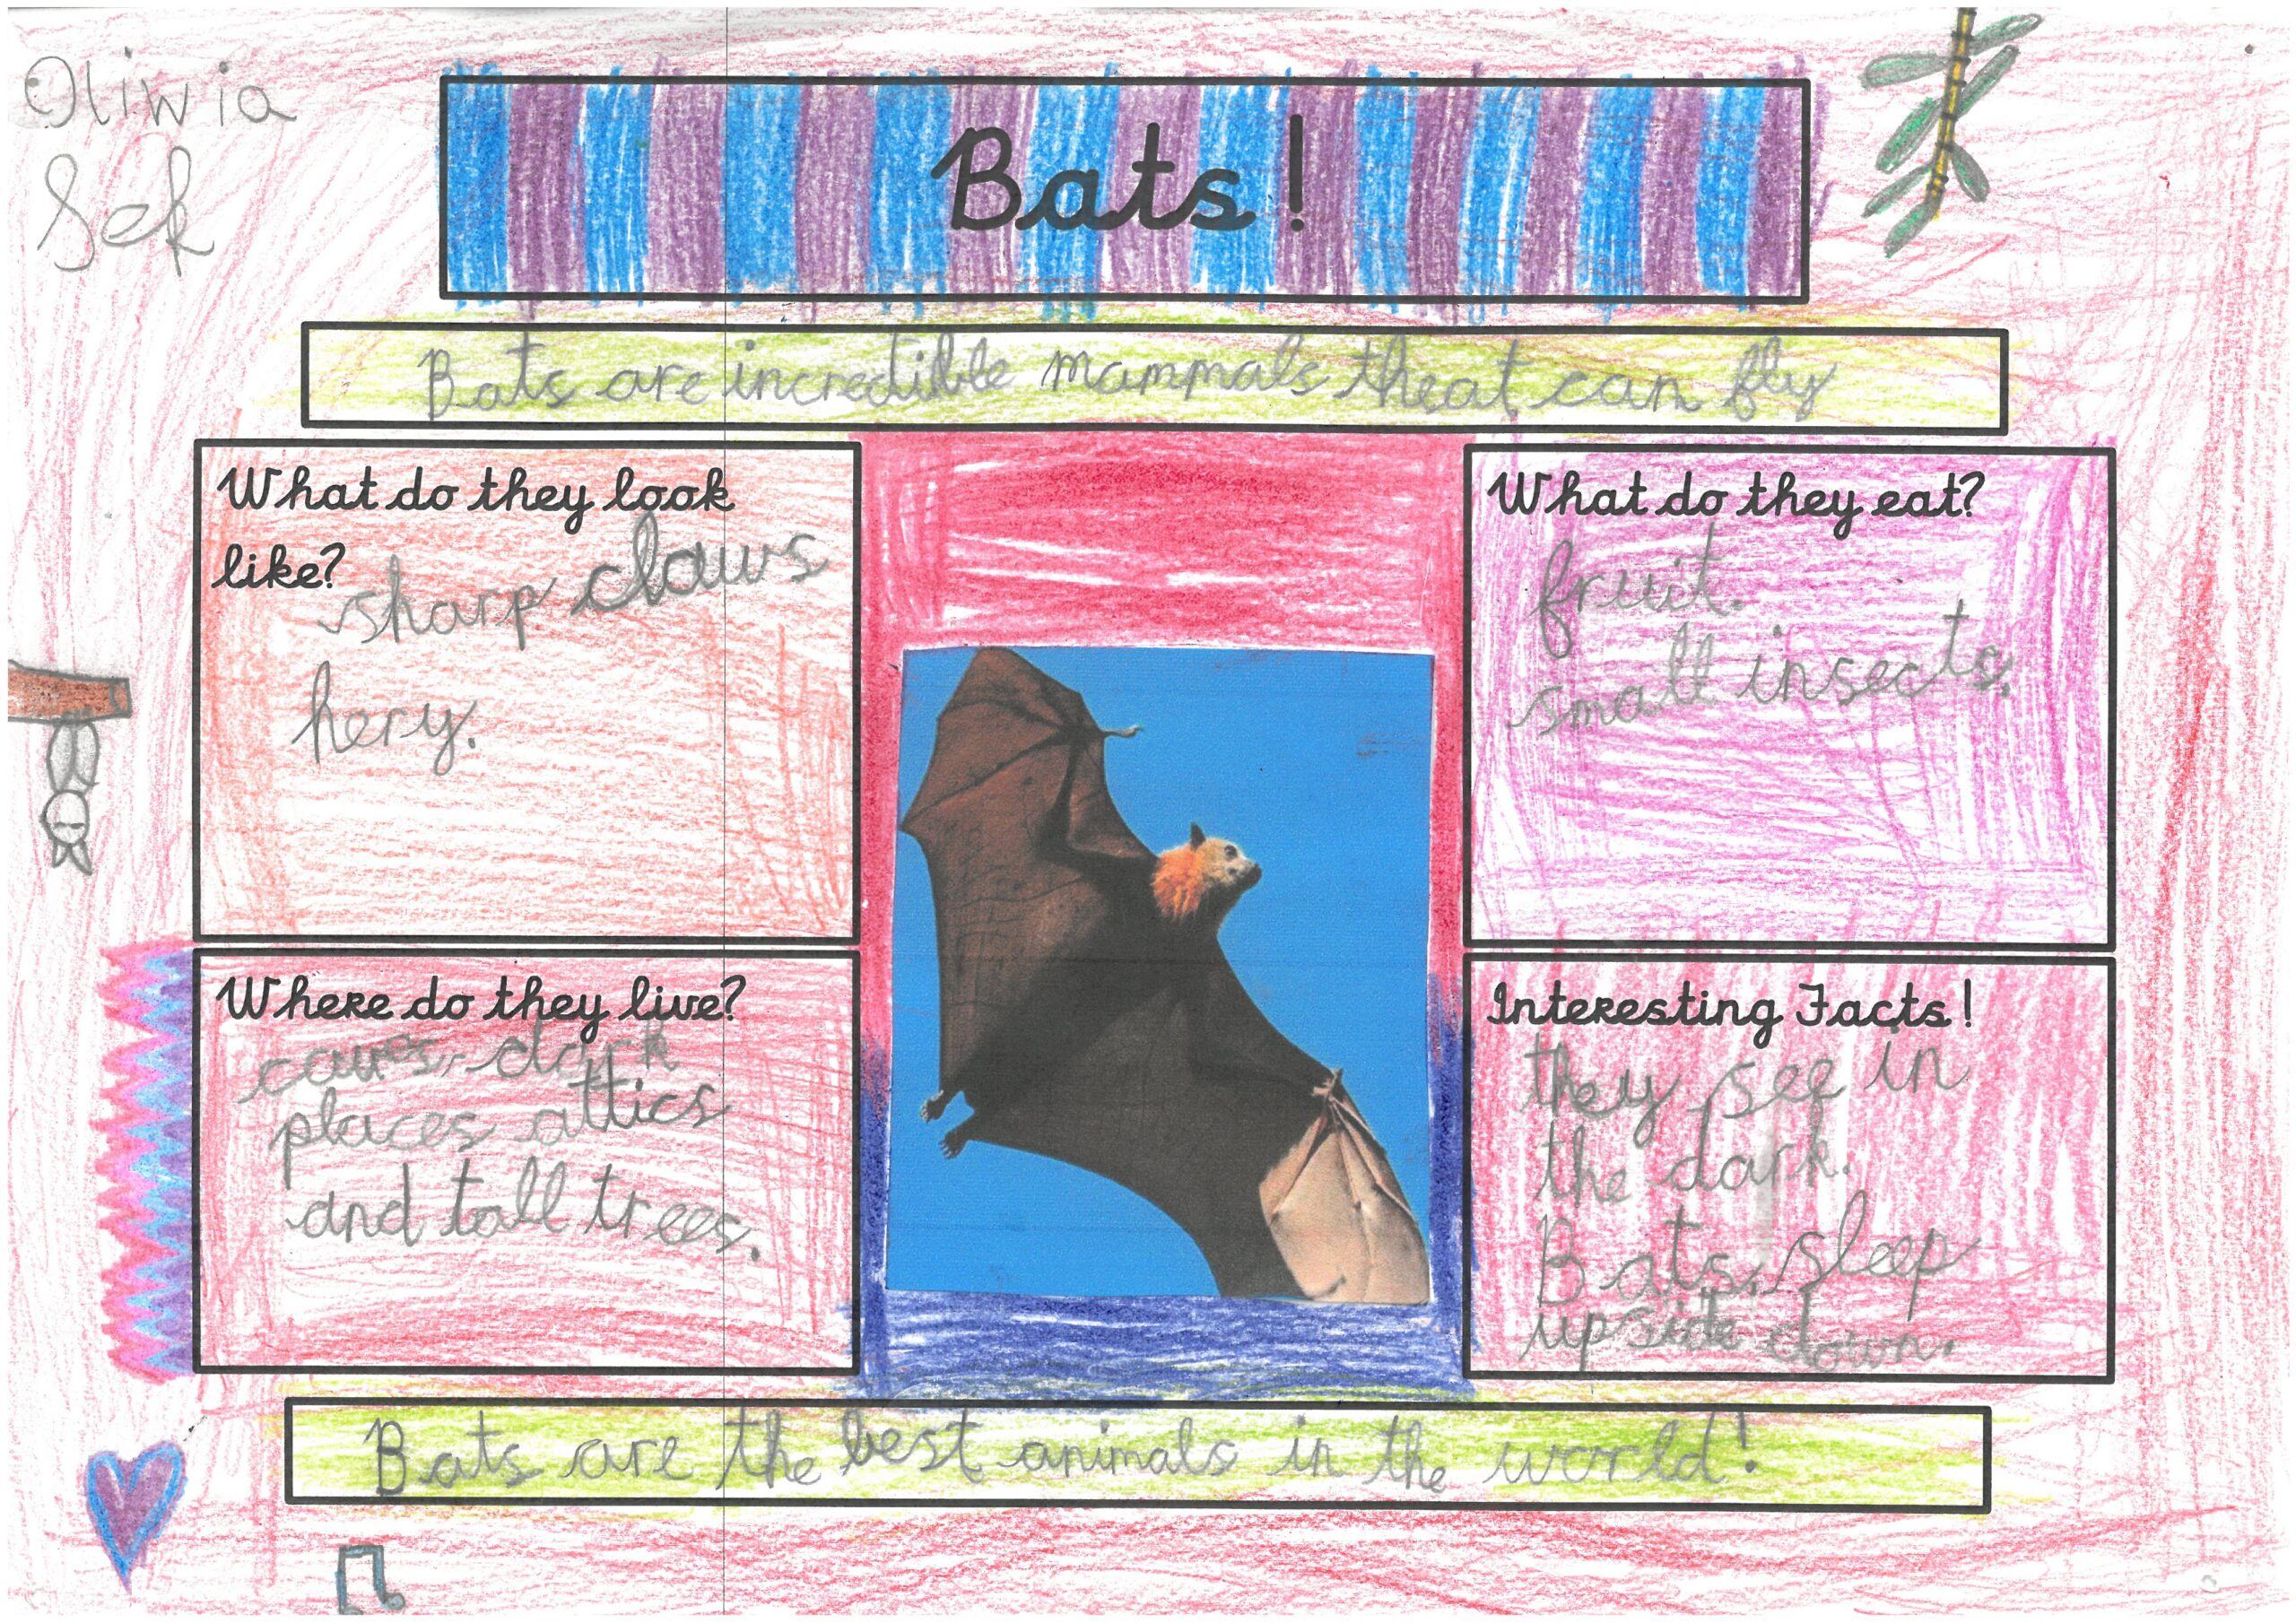 Oliwia
Sek
Bats!
Bats are incredible mammals theat can fly
What do they look
like?
sharp claws
hery.
What do they eat?
fruit.
small insects.
Where do they live?
caves, dark
places attics
and tall trees.
Interesting Facts!
they see in
the dark.
Bats sleep
upside down.
Bats are the best animals in the world!